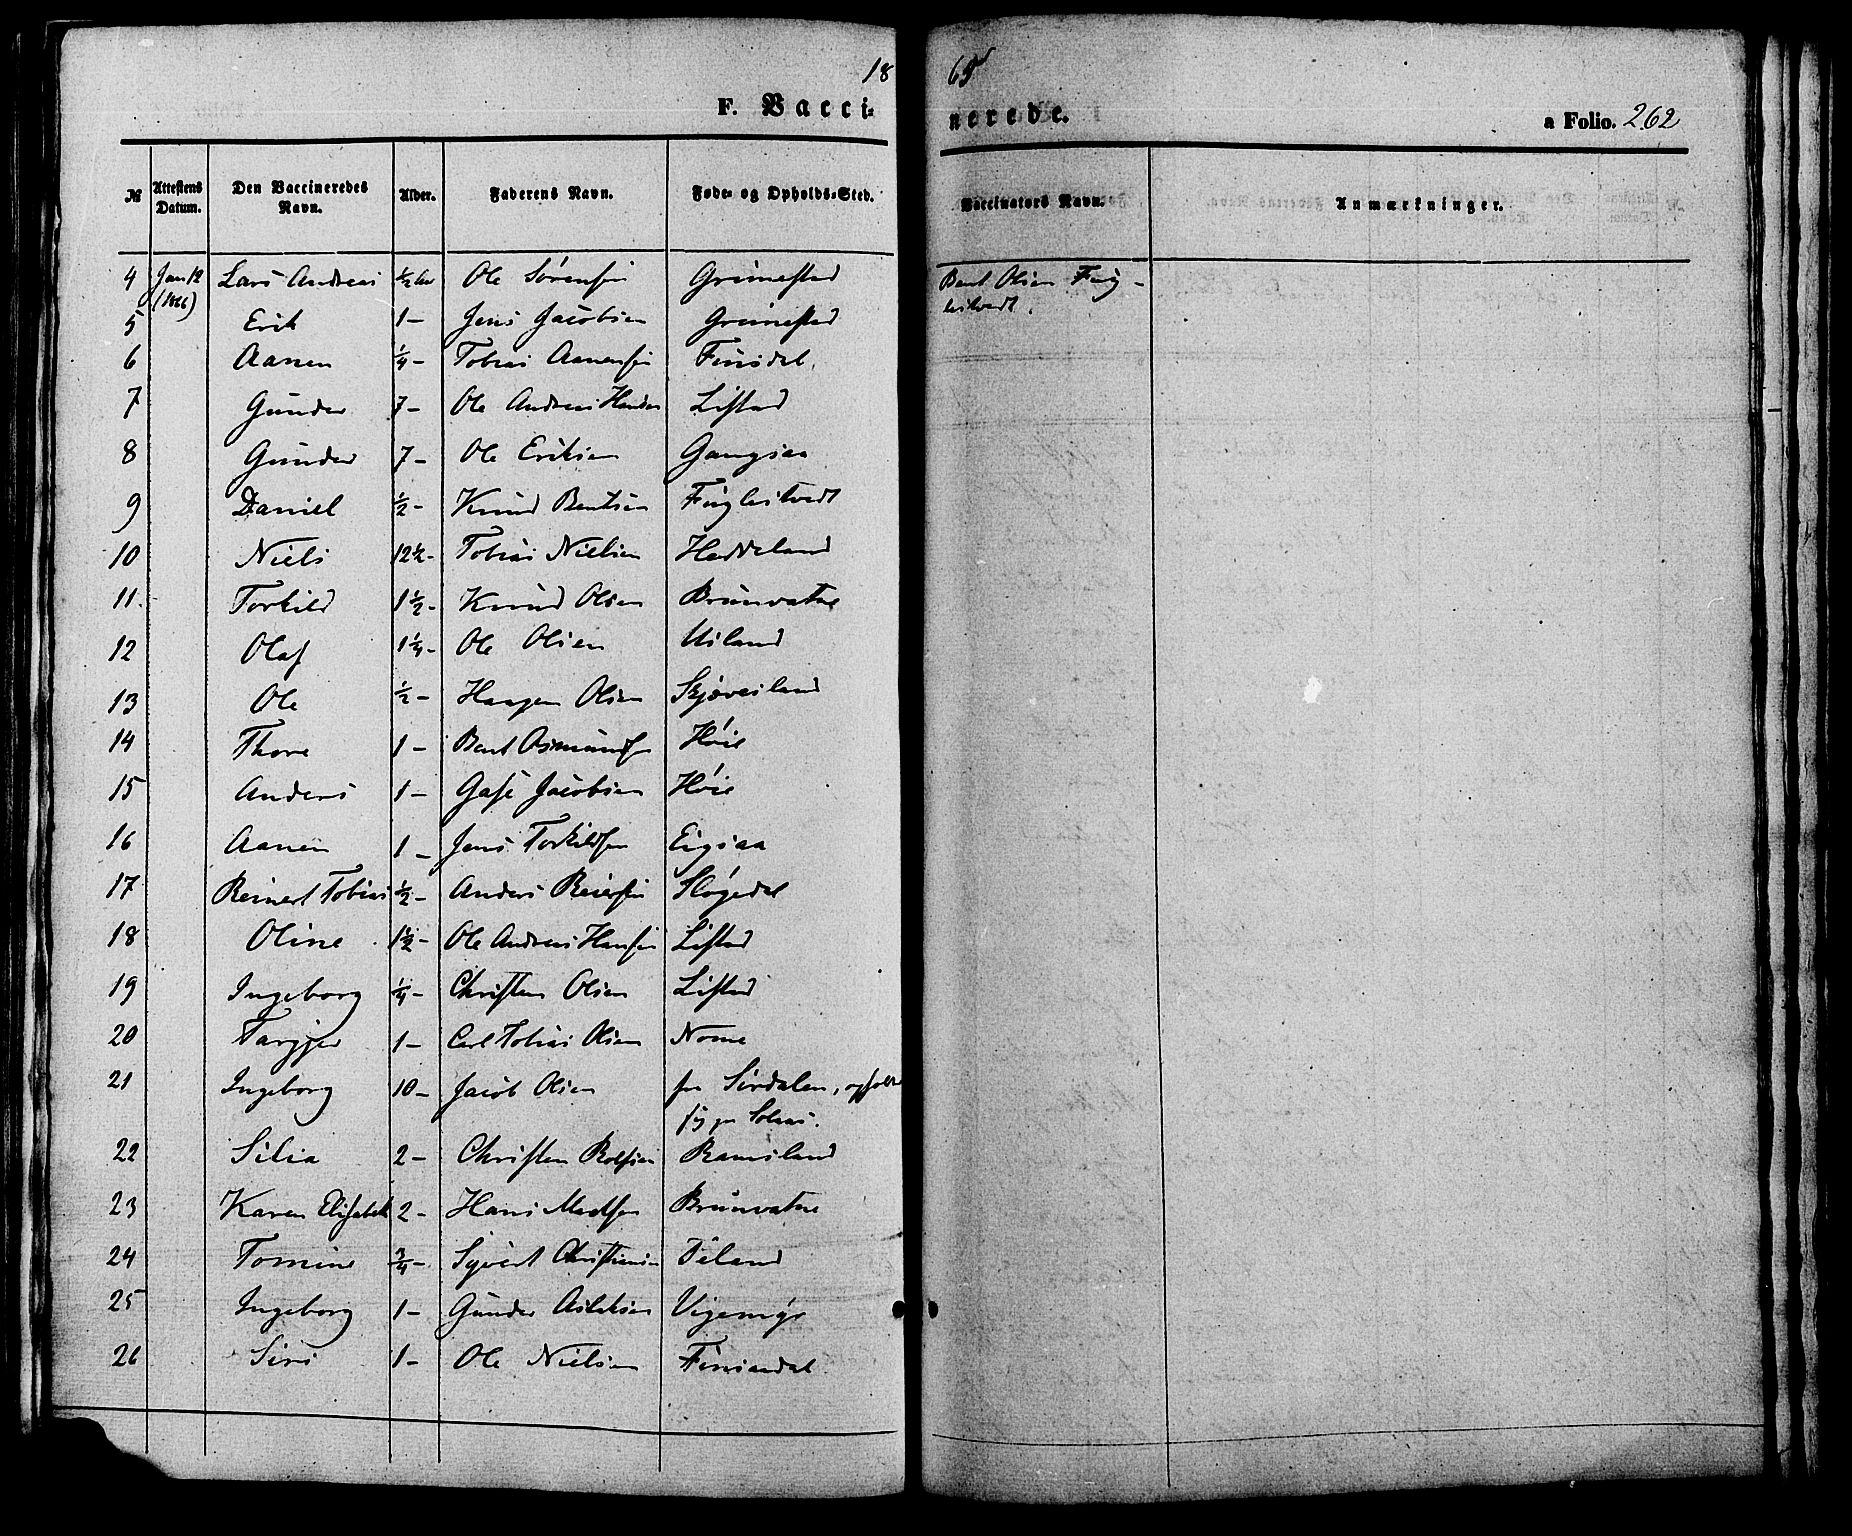 18 65
F. Vaccinerede. a Folio. 262
№ Attestens Datum. Den Vaccineredes Navn. Alder. Faderens Navn. Føde- og Opholds-Sted. Vaccinators Navn. Anmærkninger.
4 Jan 12 (1866) Lars Andreas ½ Aar Ole Sørensen Grimestad Bent Olsen Fuglestvedt.
5 Erik 1 – Jens Jacobsen Grimestad
6 Aanen ¼ – Tobias Aanensen Finsdal.
7 Gunder 7 – Ole Andreas Hansen Listad
8 Gunder 7 – Ole Eriksen Gangsaa
9 Daniel ½ – Knud Bentsen Fuglestvedt
10 Niels 12½ – Tobias Nielsen Haddeland
11. Torkild 1½ – Knud Olsen Brunvatne
12 Olaf 1¼ – Ole Olsen Usland
13 Ole ½ – Haagen Olsen Skjøvesland
14 Thore 1 – Bent Osmundsen Høie
15 Anders 1 – Jacobsen Høie
16 Aanen 1 – Jens Torkildsen Eigsaa
17 Reinert Tobias ½ – Anders Reiersen Sløgedal
18 Oline 1½ – Ole Andreas Hansen Listad
19 Ingeborg ¼ – Christen Olsen Listad
20 Targjer 1 – Carl Tobias Olsen Nome
21 Ingeborg 10 – Jacob Olsen fra Sirdalen,
22 Silia 2 – Christen Ramsland
23 Karen Elisabeth 2 – Hans Madsen Brunvatne
24 Tomine ¾ – Syvert Christensen
25 Ingeborg 1 – Gunder Aslaksen Vigemyr
26 Siri 1 – Ole Nielsen Finsandal.